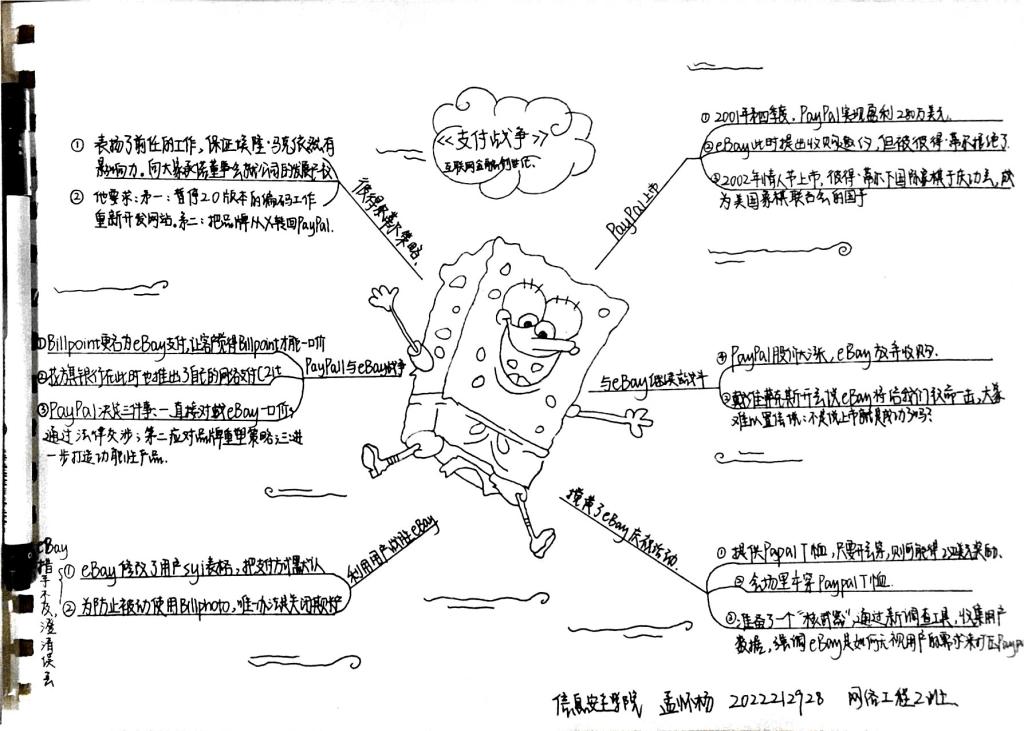 《支付战争》
互联网金融创世纪、
彼得·蒂尔策略、
① 表扬了前任的工作，保证埃隆·马克依然有
影响力。向大家承诺董事会新公司的发展
② 他要求：第一：暂停2.0版本的编码工作
重新开发网站。第二：把品牌从X转回PayPal.
PayPal上市
① 2001年第四季度，PayPal实现盈利280万美元
② eBay此时提出收购，但被彼得·蒂尔拒绝了.
③ 2002年情人节上市，彼得·蒂尔下国际象棋于庆功会，成
为美国象棋联合会的国手
PayPall与eBay战争
① Billpoint更名为eBay支付，让客户觉得Billpoint才能一口价
② 此时也推出了自己的网络支付C2it
③ PayPal决定三件事：一直接对eBay一口价
通过法律交涉；第二应对品牌重塑策略；三进
一步打造功能性产品.
与eBay继续战斗
④ PayPall股价大涨，eBay放弃收购.
eBay将给我们致命一击，大家
难以置信：不是说上市就是成功了吗？
利用用户战胜eBay
① eBay修改了用户syi表格，把支付方式默认
② 为防止被动使用Billphoto，唯一办法关闭
eBay
措手不及，澄清误会
搅黄了eBay庆祝活动.
① 提供Papal T恤，只要穿，则可能得250美元奖励.
② 会场里卡穿Paypal T恤
③ 准备了一个“核武器”，通过新调查工具，收集用户
数据，强调eBay是如何无视用户的需求来打压Paypal
信息安全学院 孟怀杨 2022212928 网络工程2班